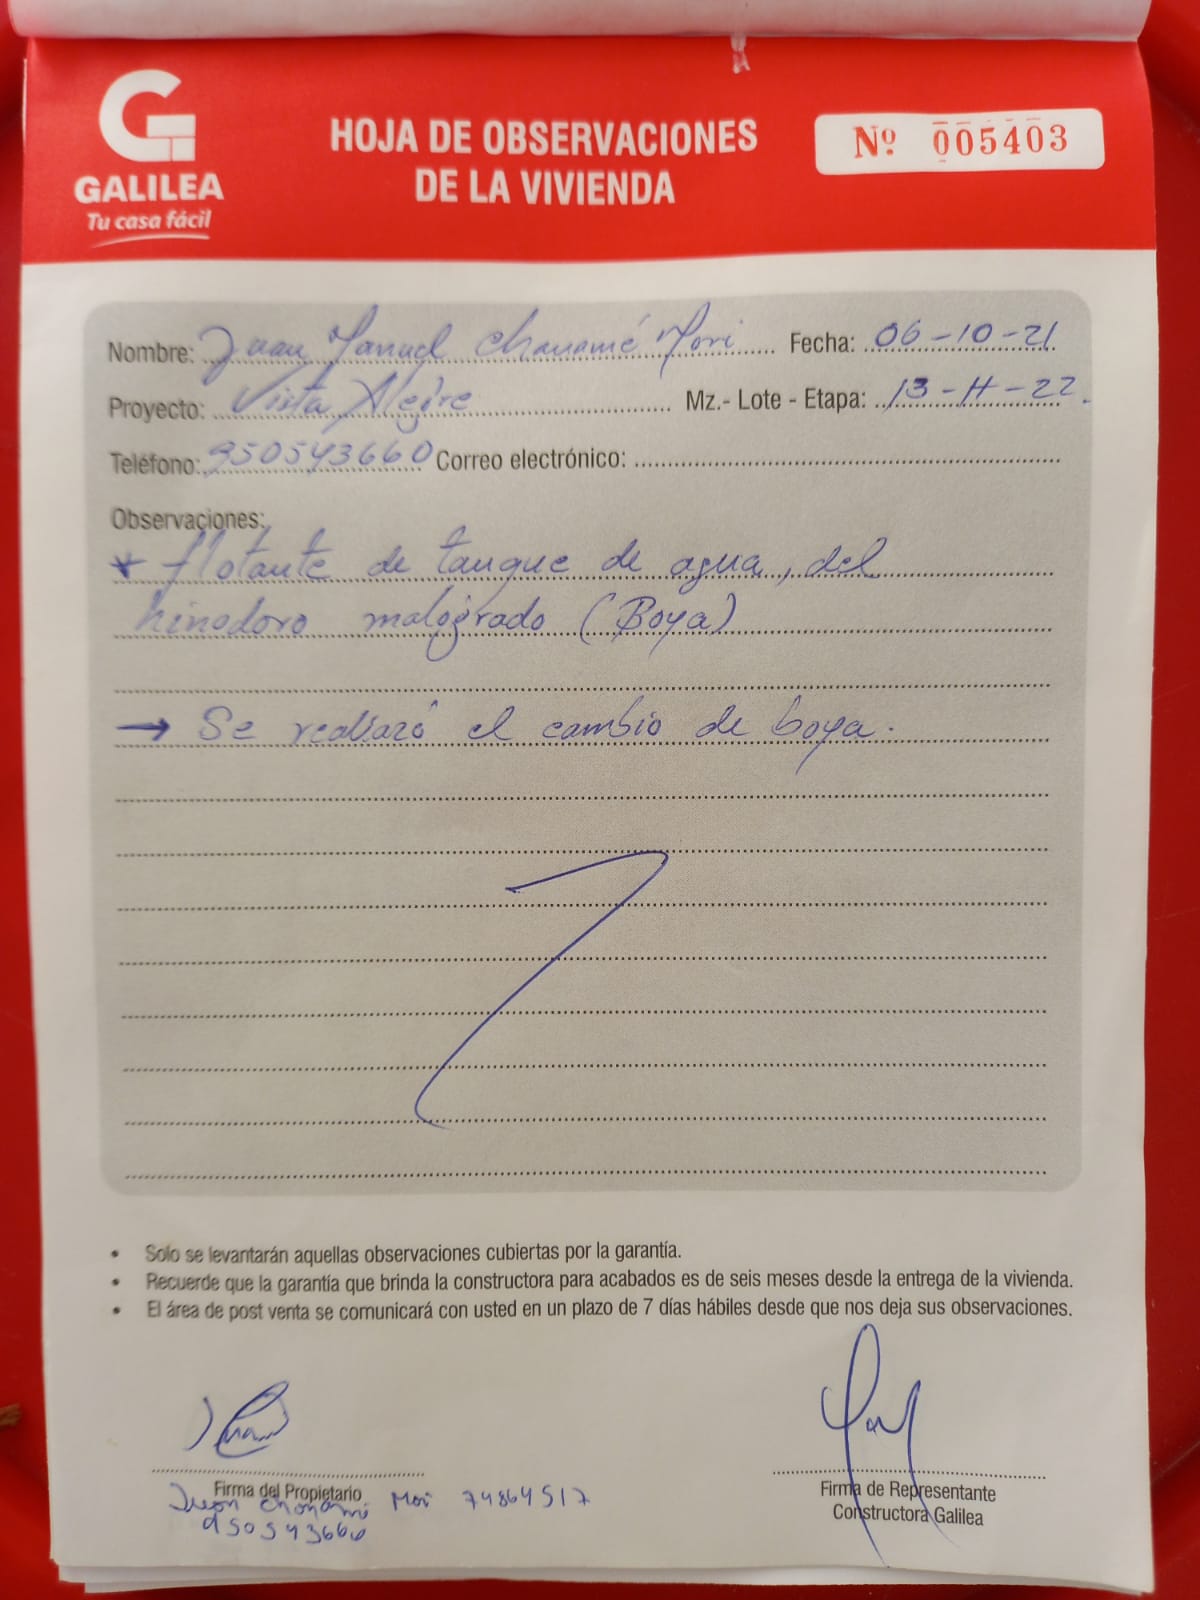 GALILEA
Tu casa fácil
HOJA DE OBSERVACIONES
DE LA VIVIENDA
Nº 005403
Nombre: Juan Manuel Chanamé Mori Fecha: 06-10-21
Proyecto: Vista Alegre Mz.- Lote - Etapa: 13-H-22.
Teléfono: 950543660 Correo electrónico:
Observaciones:
* flotante de tanque de agua, del
hinodoro malogrado (Boya)
→ Se realizaró el cambio de boya.
• Solo se levantarán aquellas observaciones cubiertas por la garantía.
• Recuerde que la garantía que brinda la constructora para acabados es de seis meses desde la entrega de la vivienda.
• El área de post venta se comunicará con usted en un plazo de 7 días hábiles desde que nos deja sus observaciones.
Firma del Propietario
Juan Chanamé Mori 74864517
950543660
Firma de Representante
Constructora Galilea